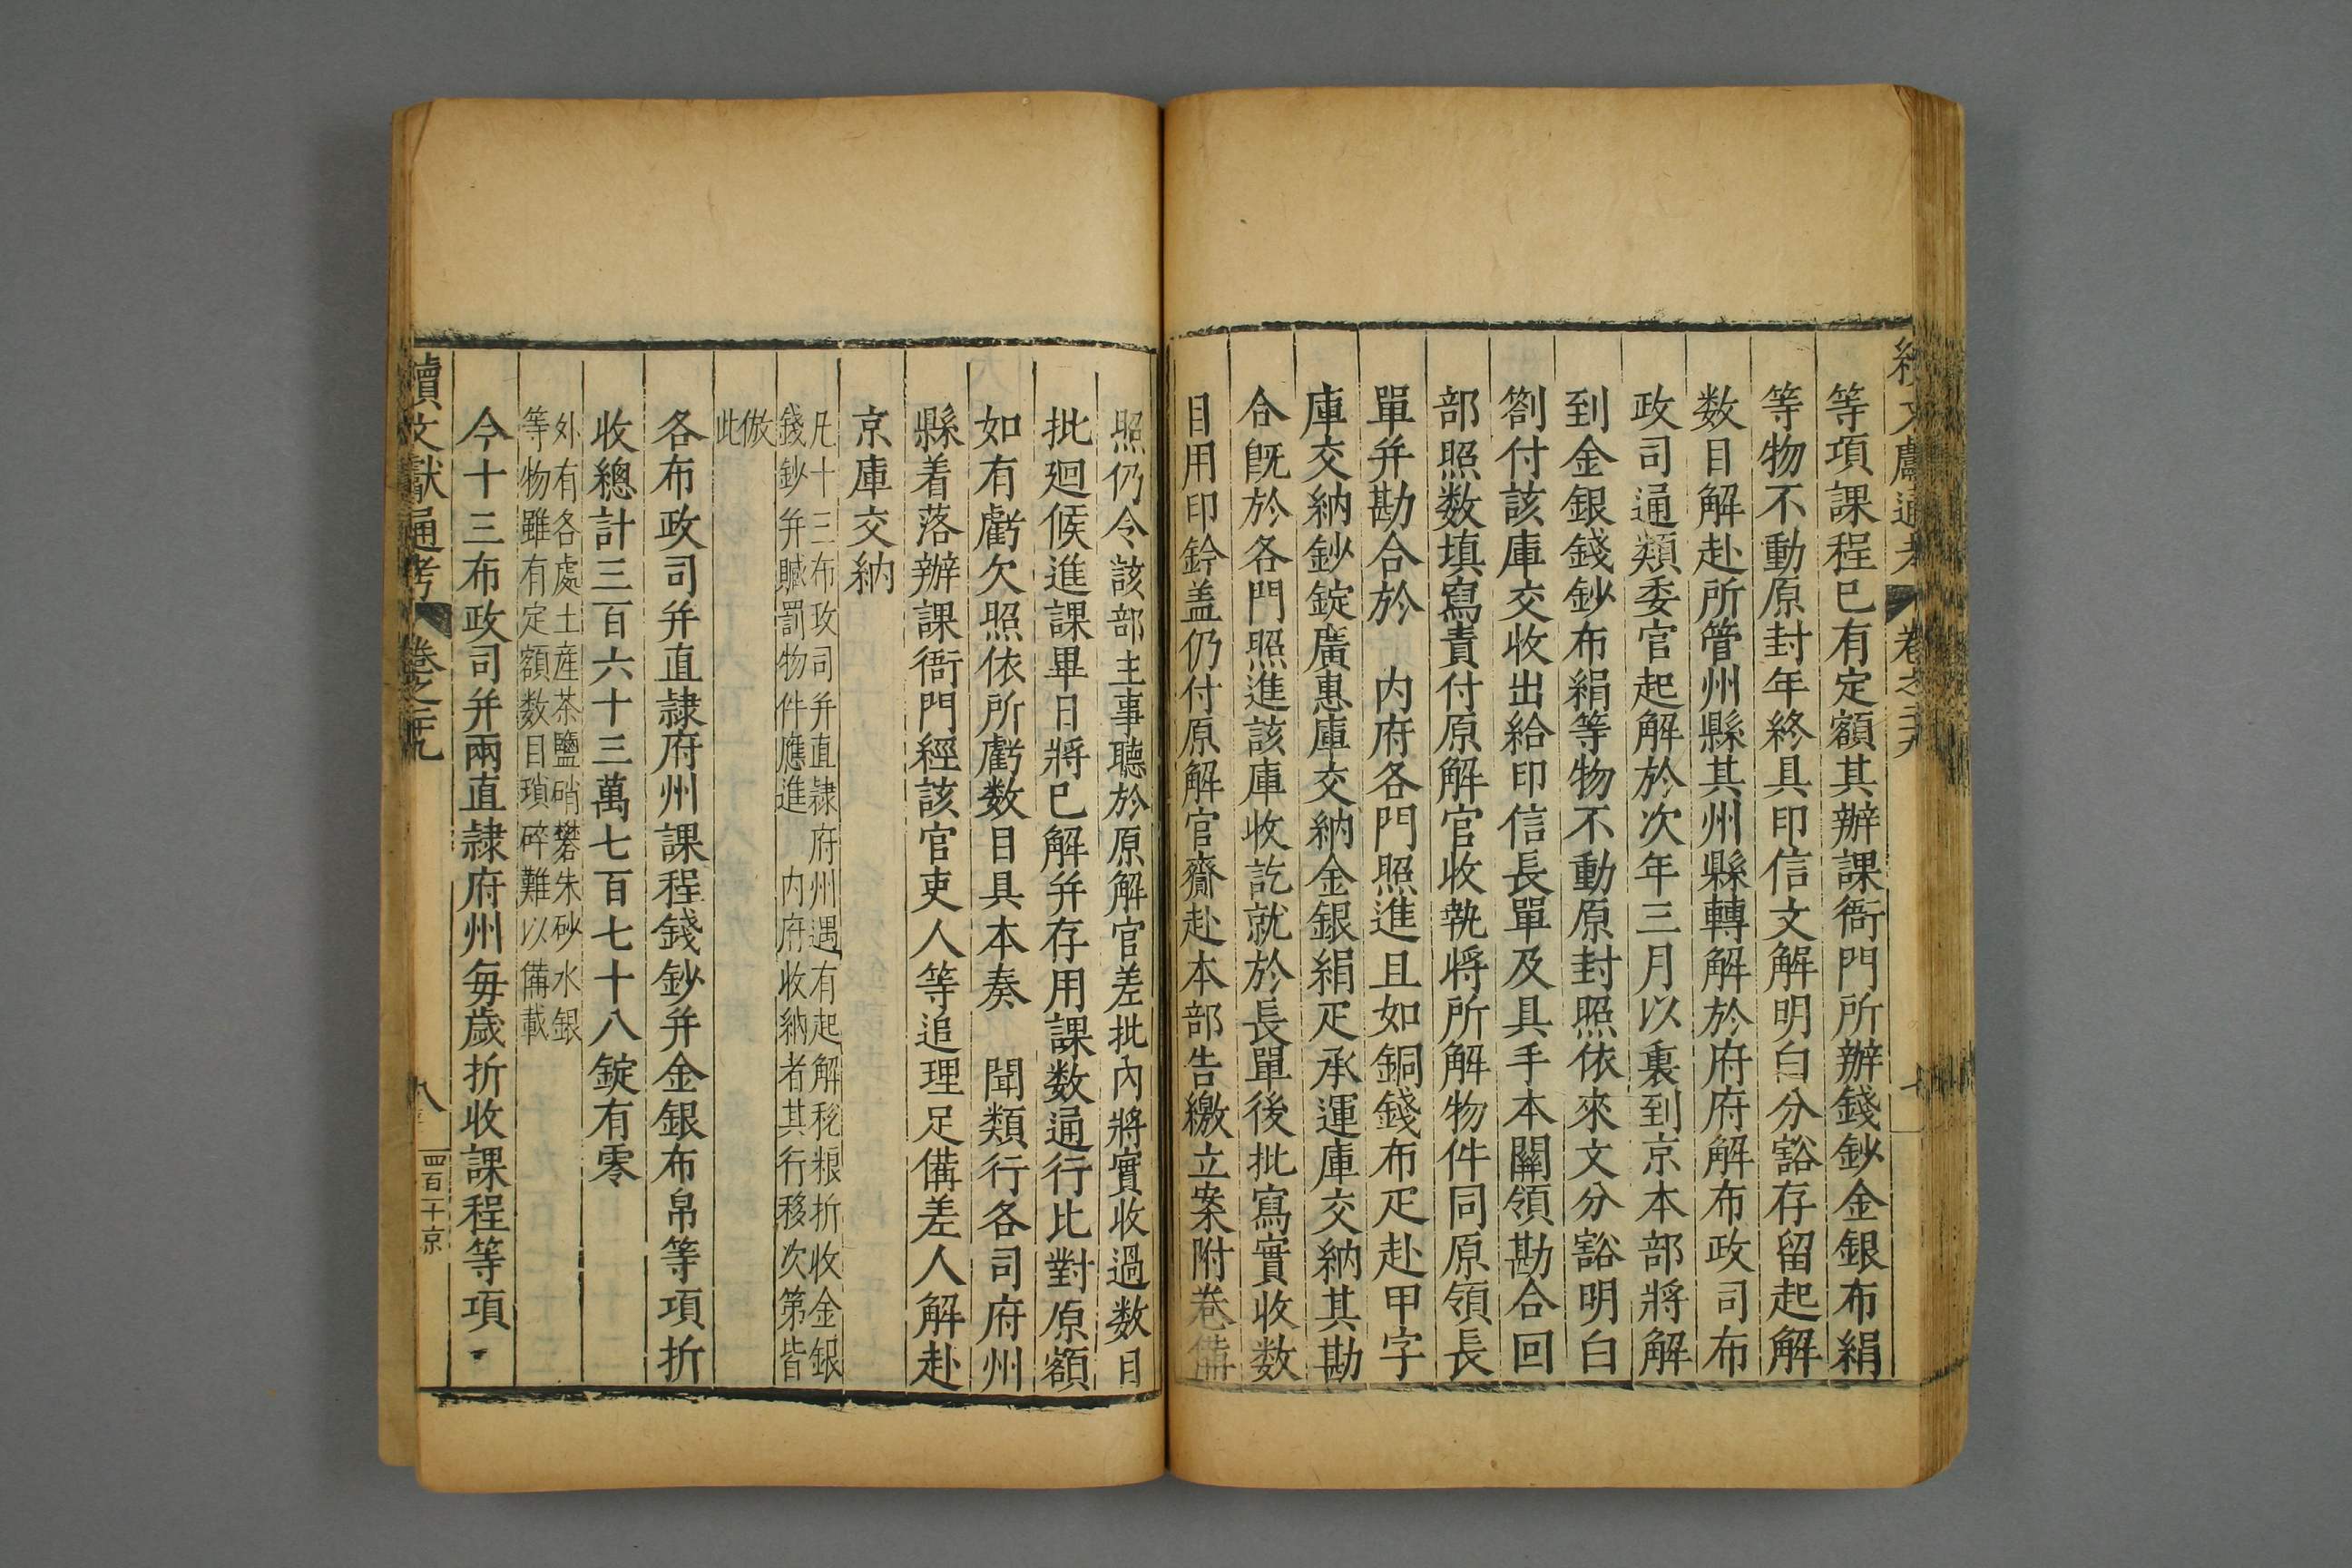 續文獻通考 卷之二十九 七
等項課程已有定額其辦課衙門所辦錢鈔金銀布絹
等物不動原封年終具印信文解明白分豁存留起解
数目解赴所管州縣其州縣轉解於府府解布政司布
政司通類委官起解於次年三月以裏到京本部將解
到金銀錢鈔布絹等物不動原封照依來文分豁明白
劄付該庫交收出給印信長單及具手本關領勘合回
部照数填寫責付原解官收執將所解物件同原領長
單并勘合於 内府各門照進且如銅錢布疋赴甲字
庫交納鈔錠廣惠庫交納金銀絹疋承運庫交納其勘
合既於各門照進該庫收訖就於長單後批寫實收数
目用印鈐盖仍付原解官齎赴本部告繳立案附卷備
照仍令該部主事聽於原解官差批內將實收過数目
批廻候進課畢日將已解并存用課数通行比對原額
如有虧欠照依所虧数目具本奏 聞類行各司府州
縣着落辦課衙門經該官吏人等追理足備差人解赴
京庫交納
凡十三布政司并直隷府州遇有起解稅粮折收金銀
錢鈔并贓罰物件應進 内府收納者其行移次第皆
倣
此
各布政司并直隷府州課程錢鈔并金銀布帛等項折
收總計三百六十三萬七百七十八錠有零
外有各處土産茶鹽硝礬朱砂水銀
等物雖有定額数目瑣碎難以備載
今十三布政司并兩直隷府州每歲折收課程等項
續文獻通考 卷之二十九 八 四百二十京